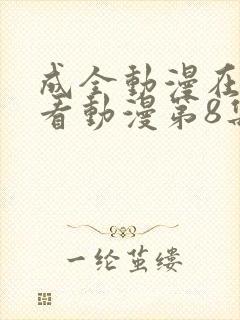 成全動漫在
看動漫第8集
一纶茧缕